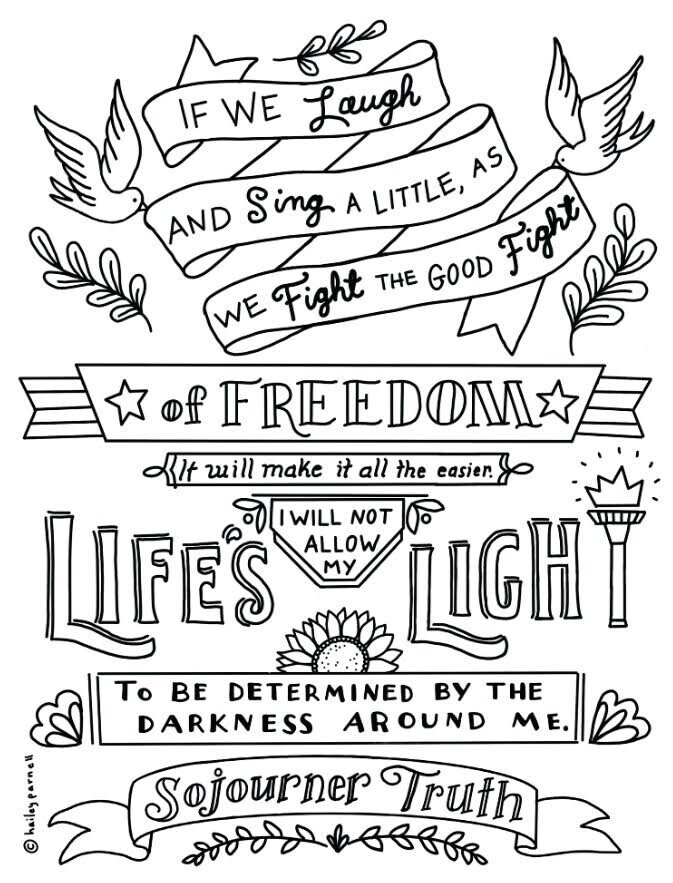 IF WE Laugh
AND Sing A LITTLE, AS
WE Fight THE GOOD Fight
of FREEDOM
It will make it all the easier.
I WILL NOT
ALLOW
MY
LIFE'S LIGHT
TO BE DETERMINED BY THE
DARKNESS AROUND ME.
Sojourner Truth
© hailey parnell